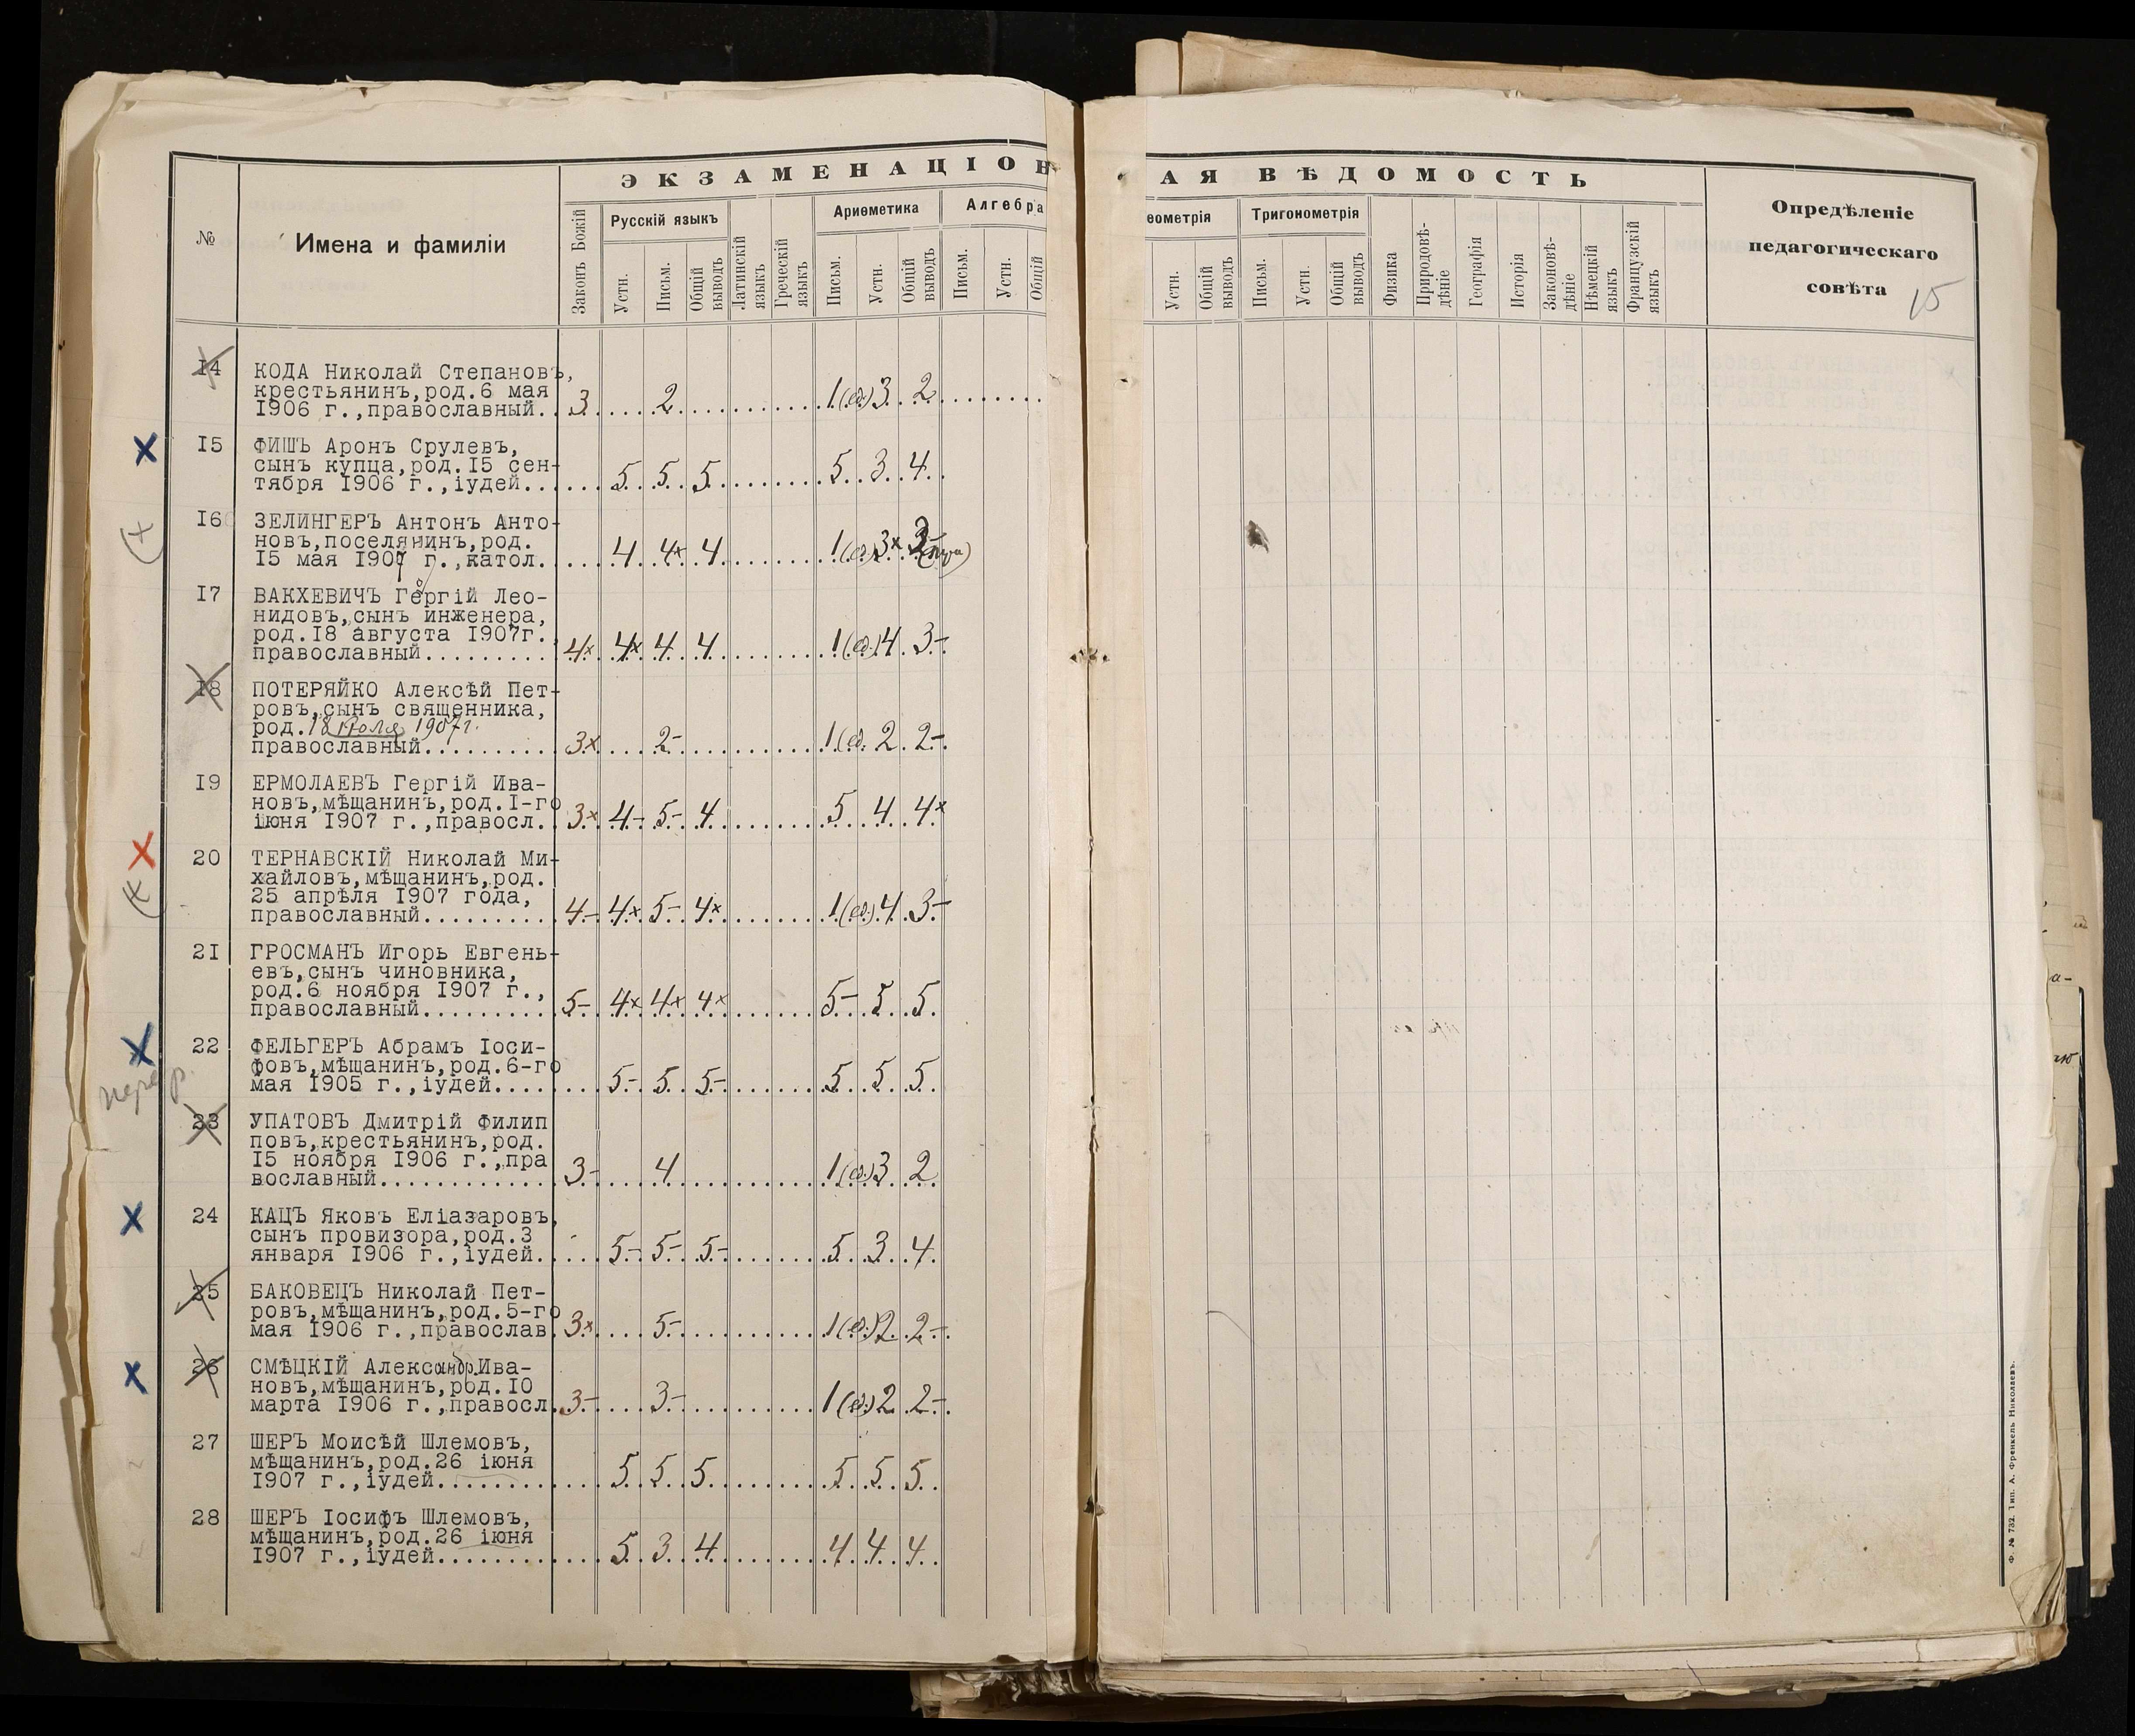 ЭКЗАМЕНАЦІОН АЯ ВѢДОМОСТЬ
№
Имена и фамиліи
Законъ Божій
Русскій языкъ
Устн.
Письм.
Общій выводъ
Латинскій языкъ
Греческій языкъ
Ариѳметика
Письм.
Устн.
Общій выводъ
Алгебра
Письм.
Устн.
Общій
еометрія
Устн.
Общій выводъ
Тригонометрія
Письм.
Устн.
Общій выводъ
Физика
Природовѣ-
дѣніе
Географія
Исторія
Законовѣ-
дѣніе
Нѣмецкій языкъ
Французскій языкъ
Опредѣленіе
педагогическаго
совѣта
15
14 КОДА Николай Степановъ,
крестьянинъ,род.6 мая
1906 г.,православный. 3 2 1(ед.) 3 2
15 ФИШЪ Аронъ Срулевъ,
сынъ купца,род.15 сен-
тября 1906 г.,іудей. 5 5 5 5 3 4
16 ЗЕЛИНГЕРЪ Антонъ Анто-
новъ,поселянинъ,род.
15 мая 1907 г.,катол. 4 4× 4 1(ед.) 3× 3- (три)
17 ВАКХЕВИЧЪ Георгій Лео-
нидовъ,сынъ инженера,
род.18 августа 1907г.,
православный 4× 4× 4 4 1(ед.) 4 3-
18 ПОТЕРЯЙКО Алексѣй Пет-
ровъ,сынъ священника,
род.18 Іюля 1907г.
православный 3× 2- 1(ед. 2 2-
19 ЕРМОЛАЕВЪ Гергій Ива-
новъ,мѣщанинъ,род.1-го
іюня 1907 г.,правосл. 3× 4- 5- 4 5 4 4×
20 ТЕРНАВСКІЙ Николай Ми-
хайловъ,мѣщанинъ,род.
25 апрѣля 1907 года,
православный 4- 4× 5- 4× 1(ед.) 4 3-
21 ГРОСМАНЪ Игорь Евгень-
евъ,сынъ чиновника,
род.6 ноября 1907 г.,
православный 5- 4× 4× 4× 5- 5 5
22 ФЕЛЬГЕРЪ Абрамъ Іоси-
фовъ,мѣщанинъ,род.6-го
мая 1905 г.,іудей 5- 5 5- 5 5 5
23 УПАТОВЪ Дмитрій Филип
повъ,крестьянинъ,род.
15 ноября 1906 г.,пра
вославный 3- 4 1(ед.) 3 2
24 КАЦЪ Яковъ Еліазаровъ,
сынъ провизора,род.3
января 1906 г.,іудей. 5- 5- 5- 5 3 4
25 БАКОВЕЦЪ Николай Пет-
ровъ,мѣщанинъ,род.5-го
мая 1906 г.,православ. 3× 5- 1(ед.) 2 2-
26 СМѢЦКІЙ Александр Ива-
новъ,мѣщанинъ,род.10
марта 1906 г.,правосл. 3- 3- 1(ед.) 2 2-
27 ШЕРЪ Моисѣй Шлемовъ,
мѣщанинъ,род.26 іюня
1907 г.,іудей 5 5 5 5 5 5
28 ШЕРЪ Іосифъ Шлемовъ,
мѣщанинъ,род.26 іюня
1907 г.,іудей 5 3 4 4 4 4
Ф. № 732. Тип. А. Френкель Николаевъ.